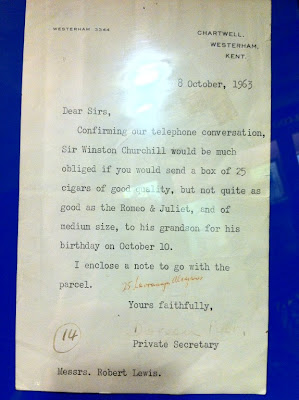 WESTERHAM 3344
CHARTWELL,
WESTERHAM,
KENT.
8 October, 1963
Dear Sirs,
Confirming our telephone conversation,
Sir Winston Churchill would be much
obliged if you would send a box of 25
cigars of good quality, but not quite as
good as the Romeo & Juliet, and of
medium size, to his grandson for his
birthday on October 10.
I enclose a note to go with the
parcel.
Yours faithfully,
14
Private Secretary
Messrs. Robert Lewis.